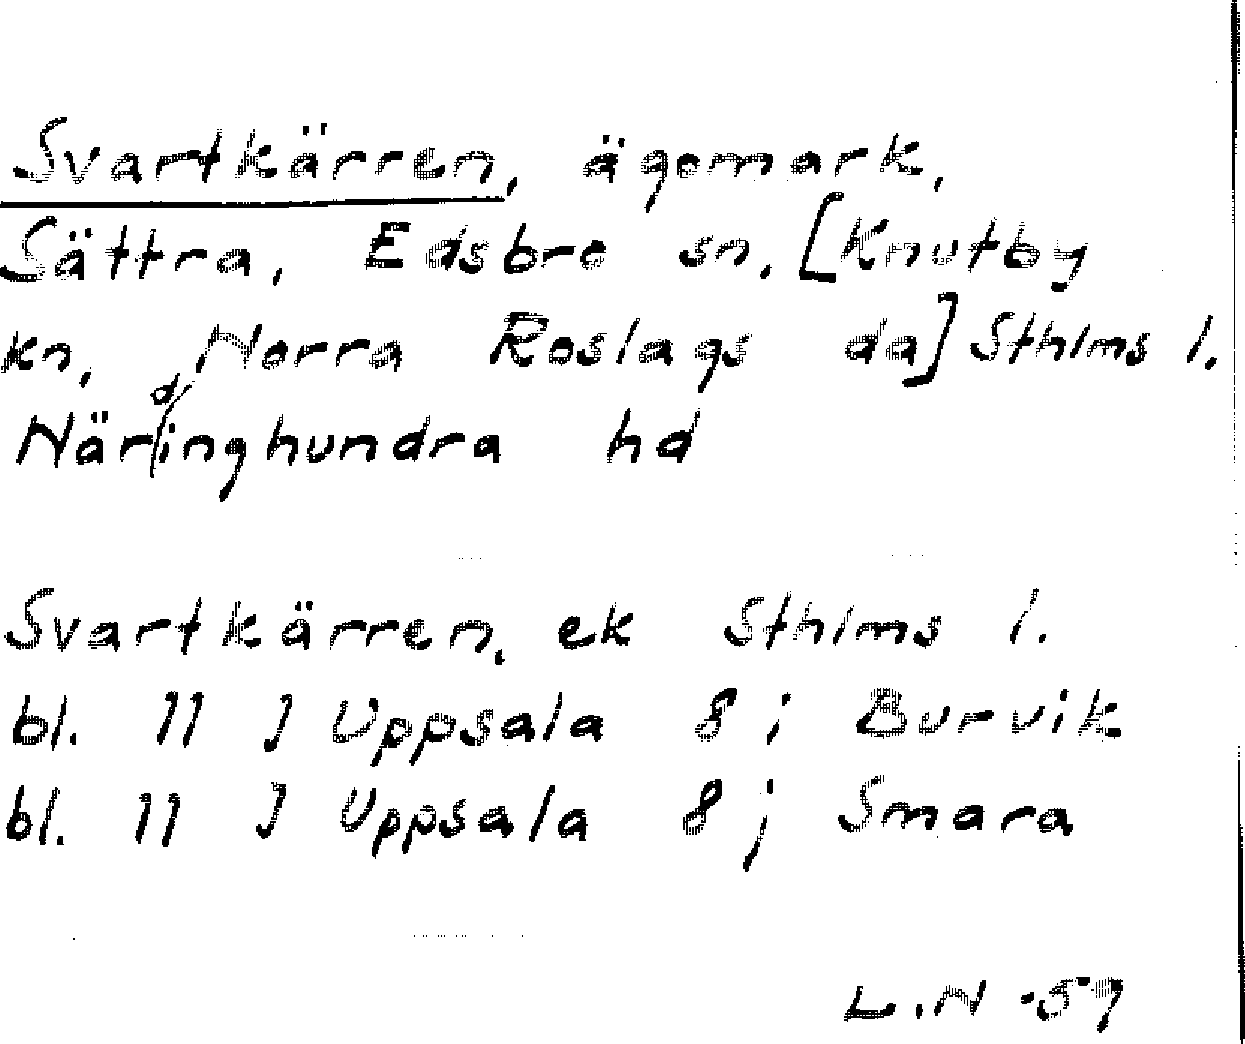 Svartkärren, ägomark,
Sättra, Edsbro sn. [Knutby
kn, Norra Roslags da] Sthlms l.
Närdinghundra hd
Svartkärren, ek Sthlms l.
bl. 11 J Uppsala 8 i Burvik
bl. 11 J Uppsala 8 j Smara
L.N -59